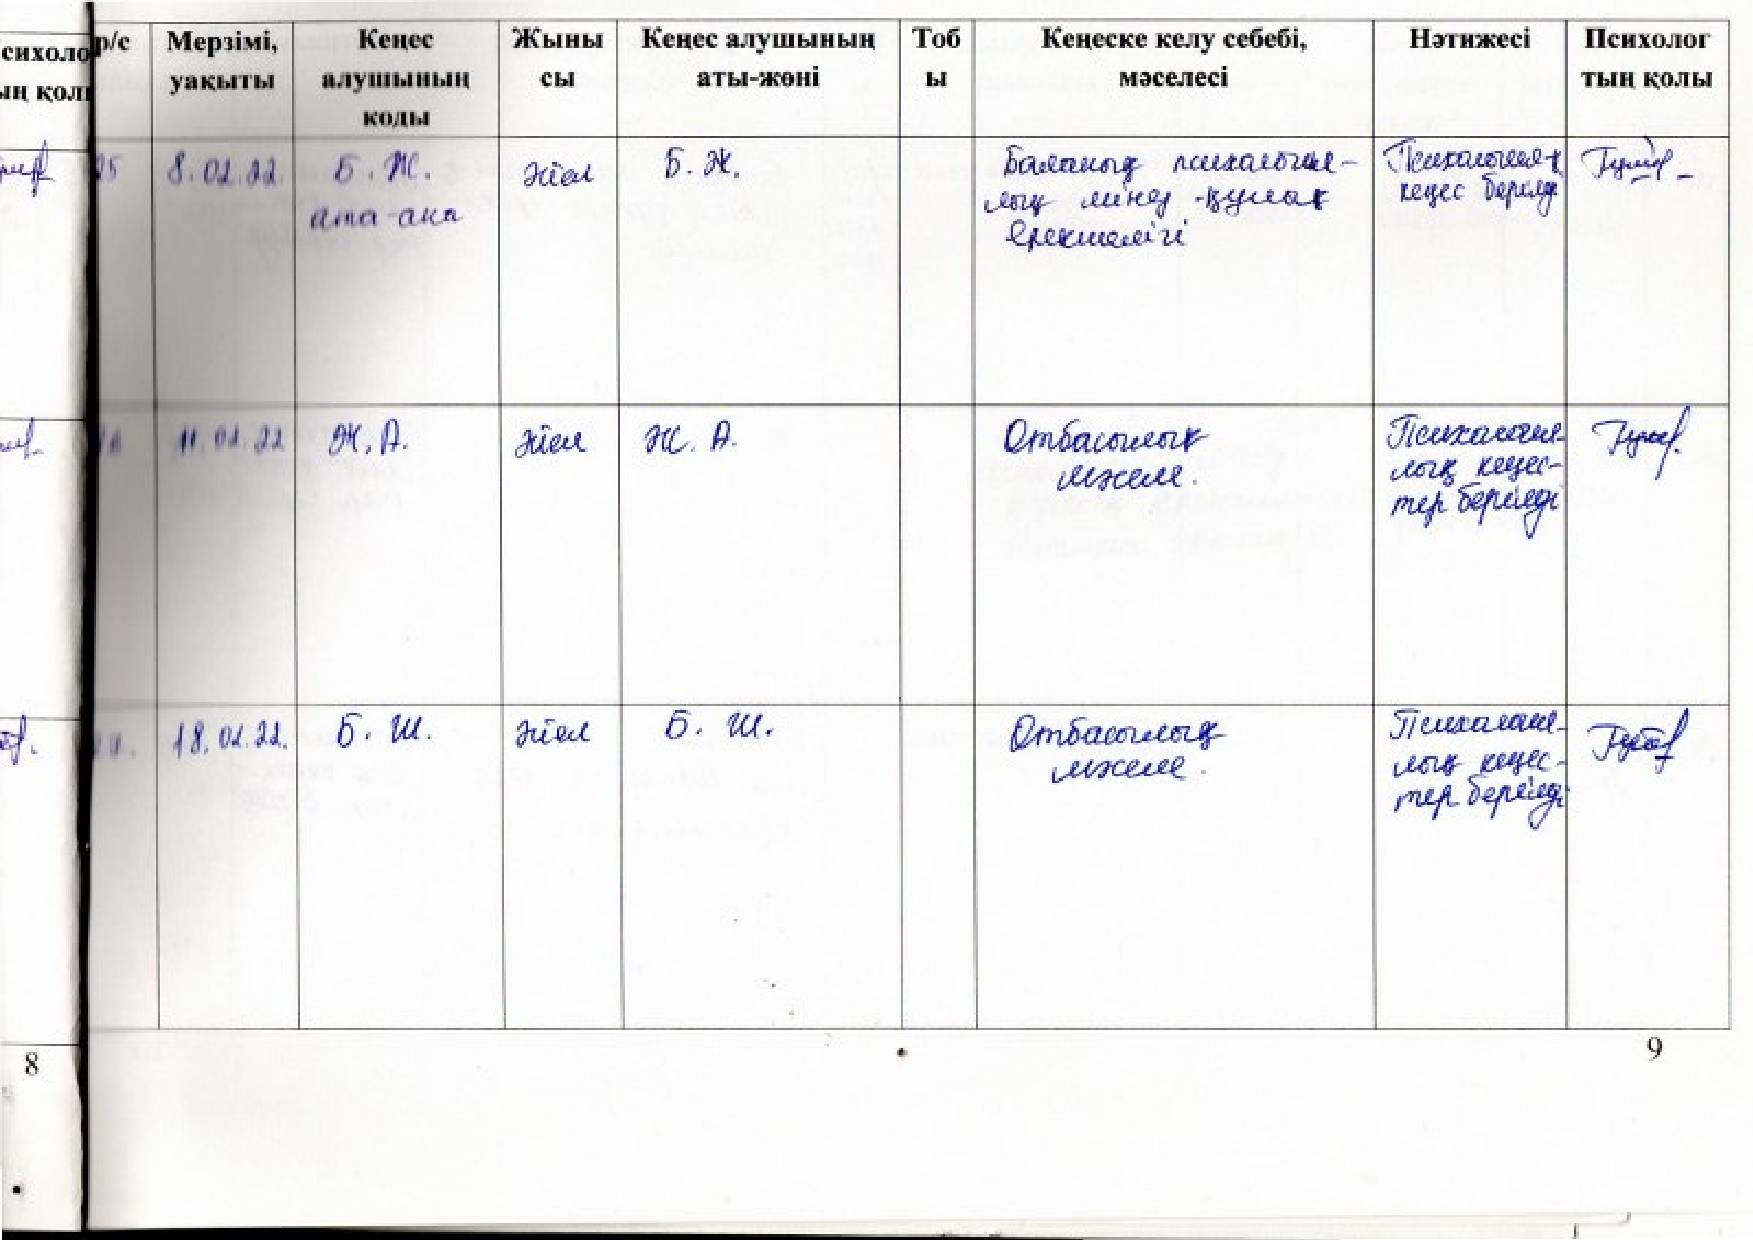 р/с
Мерзімі,
уақыты
Кеңес
алушының
коды
Жыны
сы
Кеңес алушының
аты-жөні
Тоб
ы
Кеңеске келу себебі,
мәселесі
Нәтижесі
Психолог
тың қолы
25
8.02.22.
Б. Ж.
ата-ана
Әйел
Б. Ж.
Баланың психология-
лық мінез-құлық
ерекшелігі
Психологиялық
кеңес берілді
11.02.22
Ж. А.
Әйел
Ж. А.
Отбасылық
мәселе.
Психология-
лық кеңес-
тер берілді
18.02.22.
Б. Ш.
Әйел
Б. Ш.
Отбасылық
мәселе.
Психология-
лық кеңес-
тер берілді
8
9